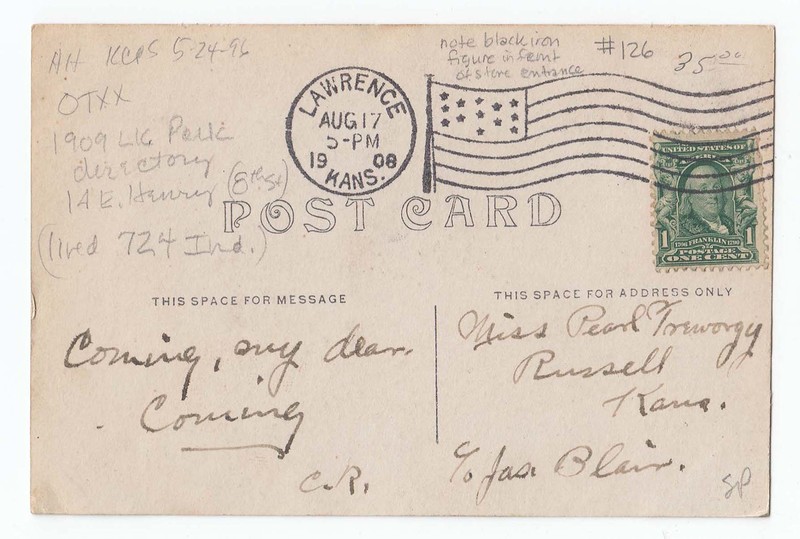 AH KCPS 5-24-96
OTXX
1909 LK Polk
directory
14 E. Henry (8th St)
(lived 724 Ind.)
note black iron
figure in front
of store entrance
#126
35.00
LAWRENCE
AUG 17
5-PM
19 08
KANS.
UNITED STATES OF
1 1
1706 FRANKLIN 1790
POSTAGE
ONE CENT
POST CARD
THIS SPACE FOR MESSAGE
THIS SPACE FOR ADDRESS ONLY
Coming, my dear.
Coming
C.R.
Miss Pearl Treworgy
Russell
Kans.
c/o Jas. Blair.
SP